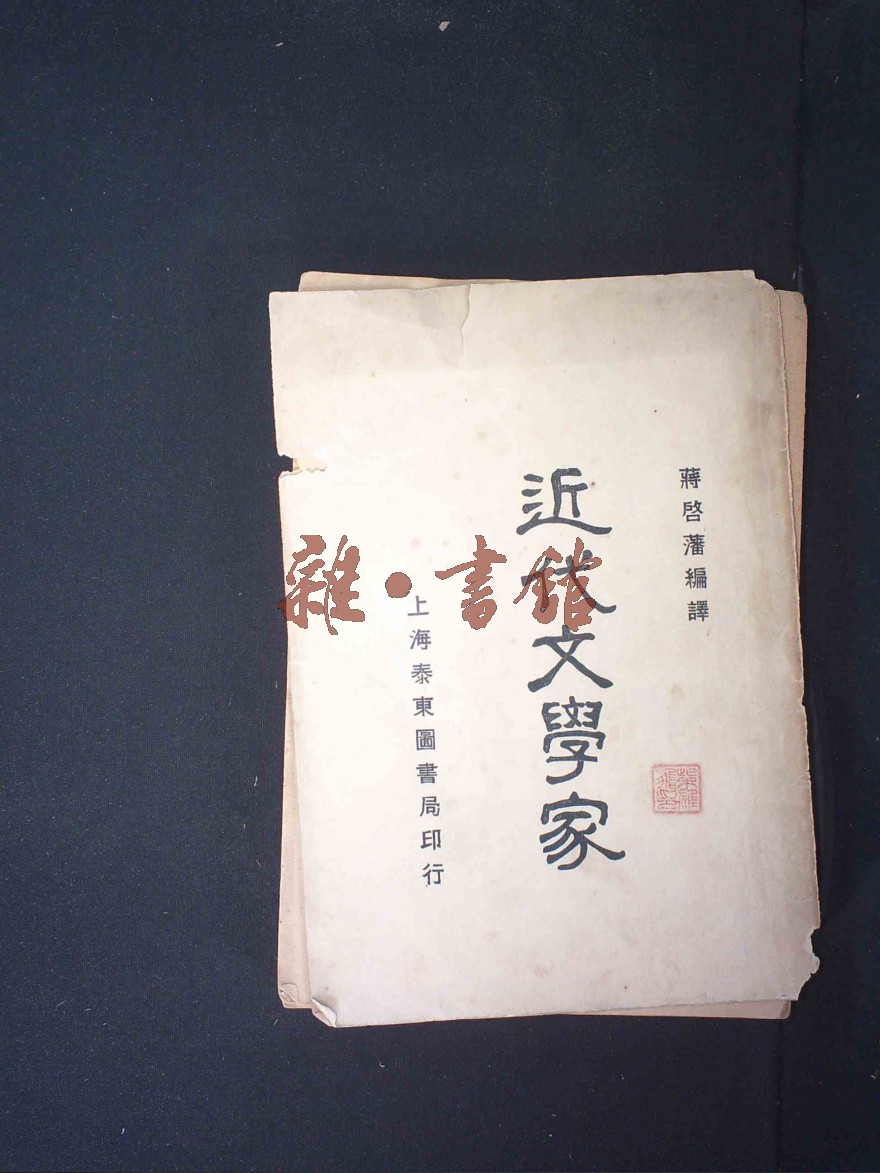 蔣啓藩編譯
近代文學家
上海泰東圖書局印行
雜·書館